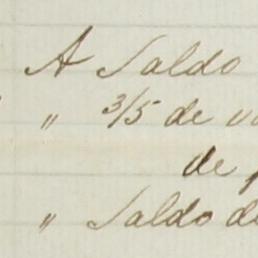 A Saldo
" 3/5 de
de
" Saldo de